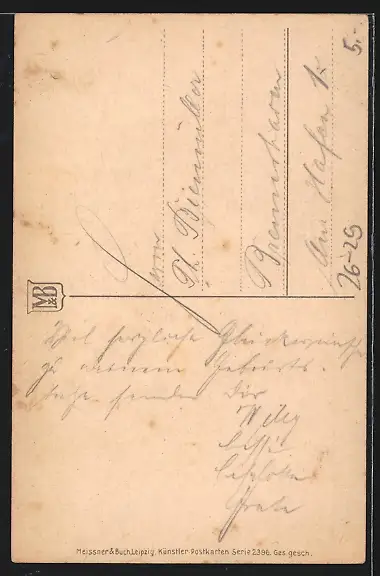 Ph. Biermüller
Bremerhaven
Am Hafen 1
5.-
26-29
MB&B
Viel herzliche Glückwünsche
zu deinem Geburts-
tage senden Dir
Willy
Grete
Meissner & Buch, Leipzig. Künstler-Postkarten Serie 2396. Ges. gesch.